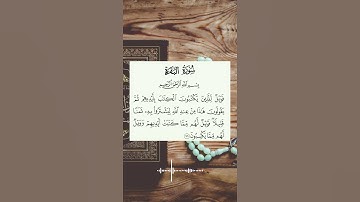 سُورَةُ البَقَرَة
بِسْمِ اللَّهِ الرَّحْمَٰنِ الرَّحِيمِ
فَوَيْلٌ لِّلَّذِينَ يَكْتُبُونَ ٱلْكِتَٰبَ بِأَيْدِيهِمْ ثُمَّ
يَقُولُونَ هَٰذَا مِنْ عِندِ ٱللَّهِ لِيَشْتَرُوا۟ بِهِۦ ثَمَنًا
قَلِيلًا فَوَيْلٌ لَّهُم مِّمَّا كَتَبَتْ أَيْدِيهِمْ وَوَيْلٌ
لَّهُم مِّمَّا يَكْسِبُونَ